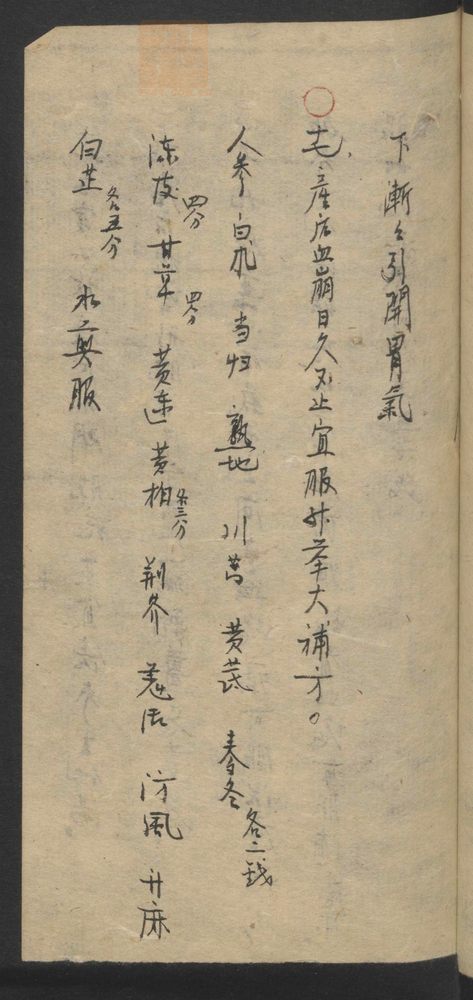 下漸々引開胃氣
产后血崩日久不止宜服升举大補方。
人参 白朮 当归 熟地 川芎 黄芪 春冬各二钱
陈皮四分 甘草四分 黄连 黄柏各三分 荆芥 羗活 防風 升麻
白芷各五分 水煎服